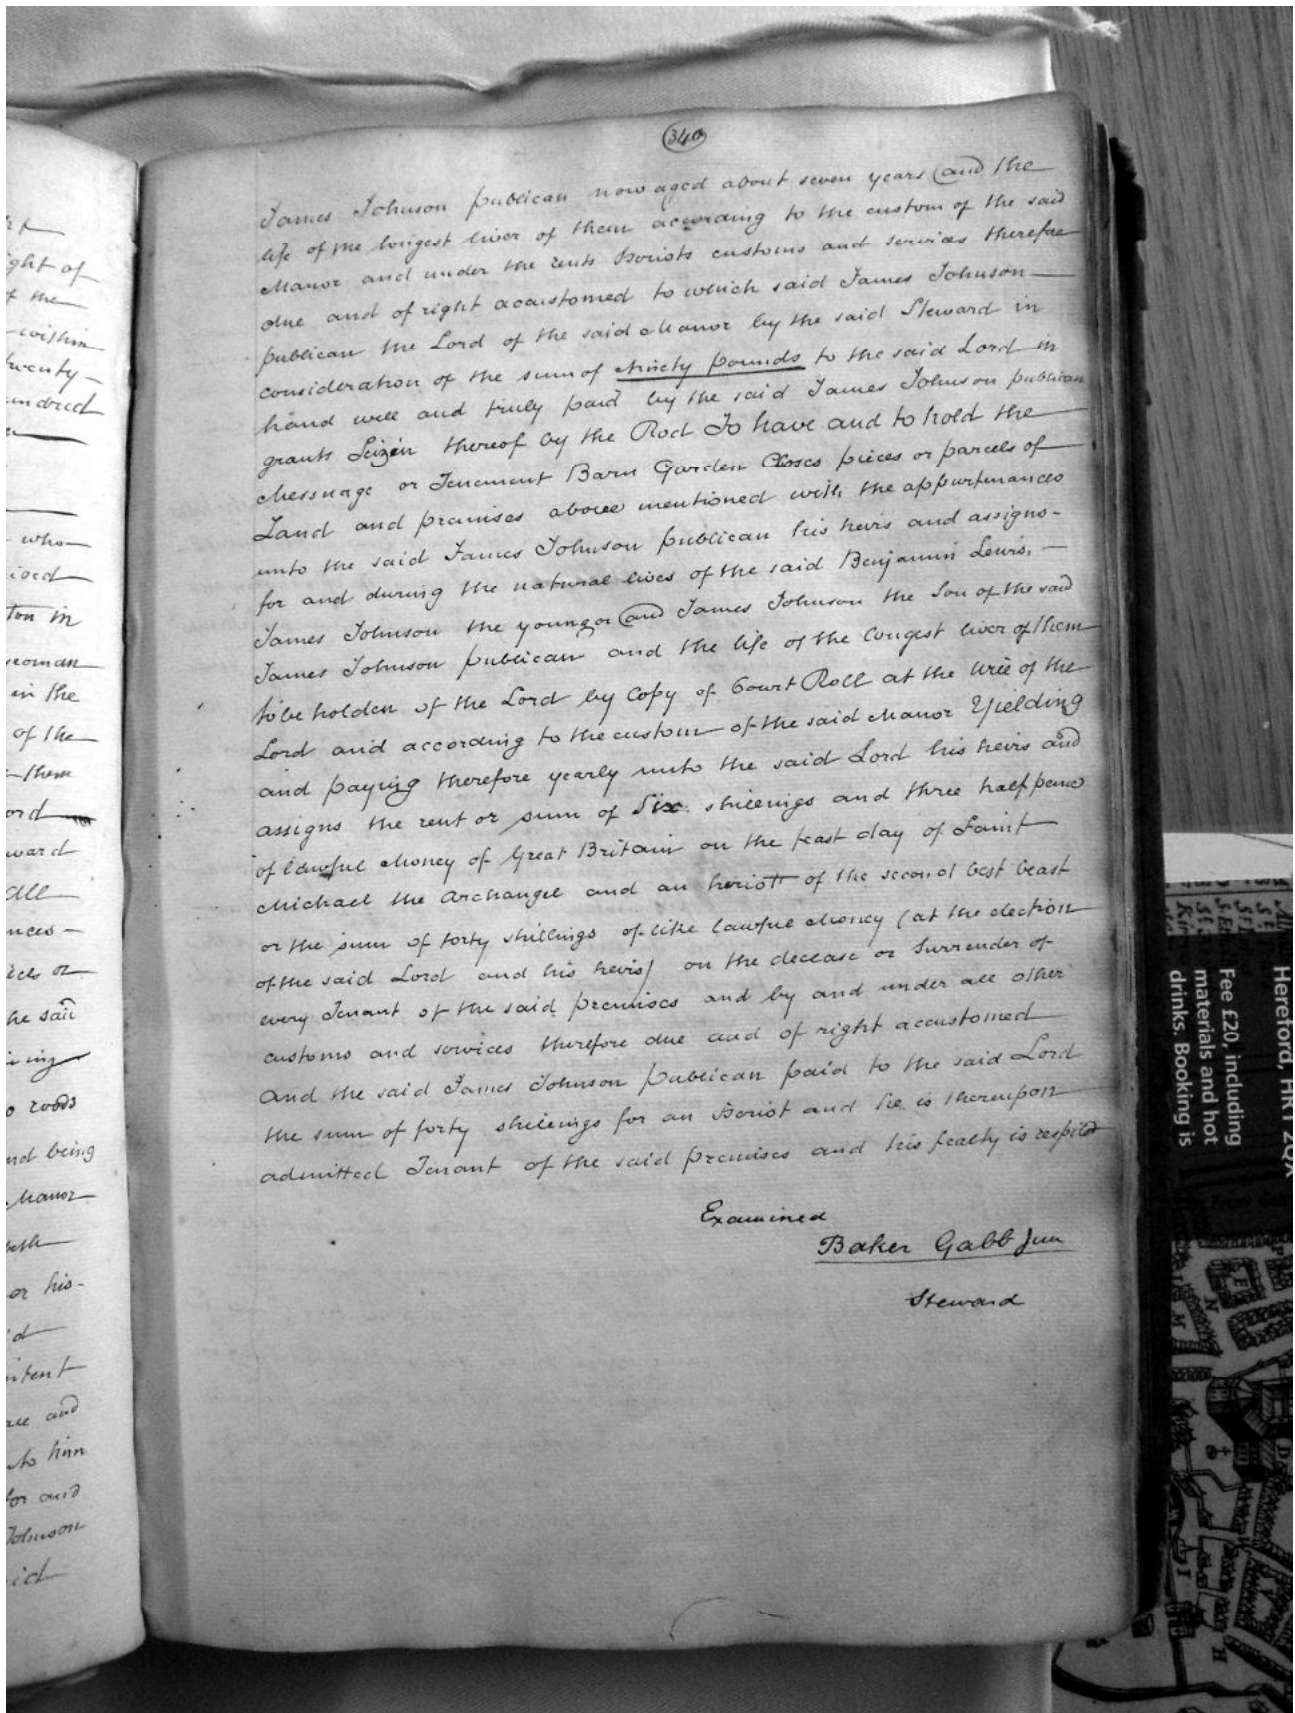 ht
ight of
f the
within
twenty-
undred
who
ton in
yeoman
in the
of the
them
ord
ward
All
nces -
he said
ing
o roods
nd being
Manor
or his-
'd
ntent
and
to him
for and
Johnson
id
340
James Johnson publican now aged about seven years (and the
life of the longest liver of them according to the custom of the said
Manor and under the rents Heriots customs and services therefore
due and of right accustomed to which said James Johnson
publican the Lord of the said Manor by the said Steward in
consideration of the sum of Ninety pounds to the said Lord in
hand well and truly paid by the said James Johnson publican
grants Seizin thereof by the Rod To have and to hold the
Messuage or Tenement Barn Garden Closes pieces or parcels of
Land and premises above mentioned with the appurtenances
unto the said James Johnson publican his heirs and assigns-
for and during the natural lives of the said Benjamin Lewis,
James Johnson the younger (and James Johnson the Son of the said
James Johnson publican and the life of the longest liver of them
to be holden of the Lord by Copy of Court Roll at the Will of the
Lord and according to the custom of the said Manor Yielding
and paying therefore yearly unto the said Lord his heirs and
assigns the rent or sum of Six shillings and three half pence
of lawful Money of Great Britain on the feast day of Saint
Michael the Archangel and an heriott of the second best beast
or the sum of forty shillings of like lawful Money (at the election
of the said Lord and his heirs) on the decease or Surrender of
every Tenant of the said premises and by and under all other
customs and services therefore due and of right accustomed
And the said James Johnson publican paid to the said Lord
the sum of forty shillings for an Heriot and he is thereupon
admitted Tenant of the said premises and his fealty is respited
Examined
Baker Gabb Jun
Steward
Hereford, HR1 2QX
Fee £20, including
materials and hot
drinks. Booking is